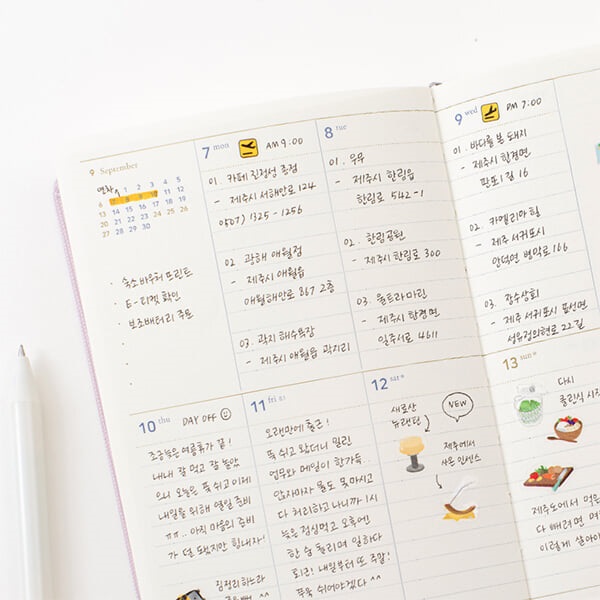 9 September
연차
1 2 3 4 5
6 7 8 9 10 11 12
13 14 15 16 17 18 19
20 21 22 23 24 25 26
27 28 29 30
· 숙소 바우처 프린트
· E-티켓 확인
· 보조배터리 주문
7 mon AM 9:00
01. 카페 진정성 종점
- 제주시 서해안로 124
0507) 1325-1256
02. 광해 애월점
- 제주시 애월읍
애월해안로 867 2층
03. 곽지 해수욕장
- 제주시 애월읍 곽지리
8 tue
01. 우무
- 제주시 한림읍
한림로 542-1
02. 한림공원
- 제주시 한림로 300
03. 울트라마린
- 제주시 한경면
일주서로 4611
9 wed PM 7:00
01. 바다를 본 돼지
- 제주시 한경면
판포1길 16
02. 카멜리아 힐
- 제주 서귀포시
안덕면 병악로 166
03. 장수상회
- 제주 서귀포시 표선면
성읍정의현로 22길
10 thu DAY OFF
조금늦은 여름휴가 끝!
내내 잘 먹고 잘 놀았
으니 오늘은 푹 쉬고 이제
내일을 위해 열일 준비
ㅠㅠ.. 아직 마음의 준비
가 덜 됐지만 힘내자!
짐정리하느라
11 fri
오랜만에 출근!
푹 쉬고 왔더니 밀린
업무와 메일이 한가득..
다 처리하고 나니까 1시
늦은 점심먹고 오후엔
한 숨 돌리며 일하다
퇴근! 내일부터 또 주말!
푸욱 쉬어야겠다 ^^
12 sat
새로산
뉴랜턴
NEW
제주에서
사온 인센스
13 sun
다시
클린식 시작
제주도에서 먹은
다 빼려면
이렇게 살아야